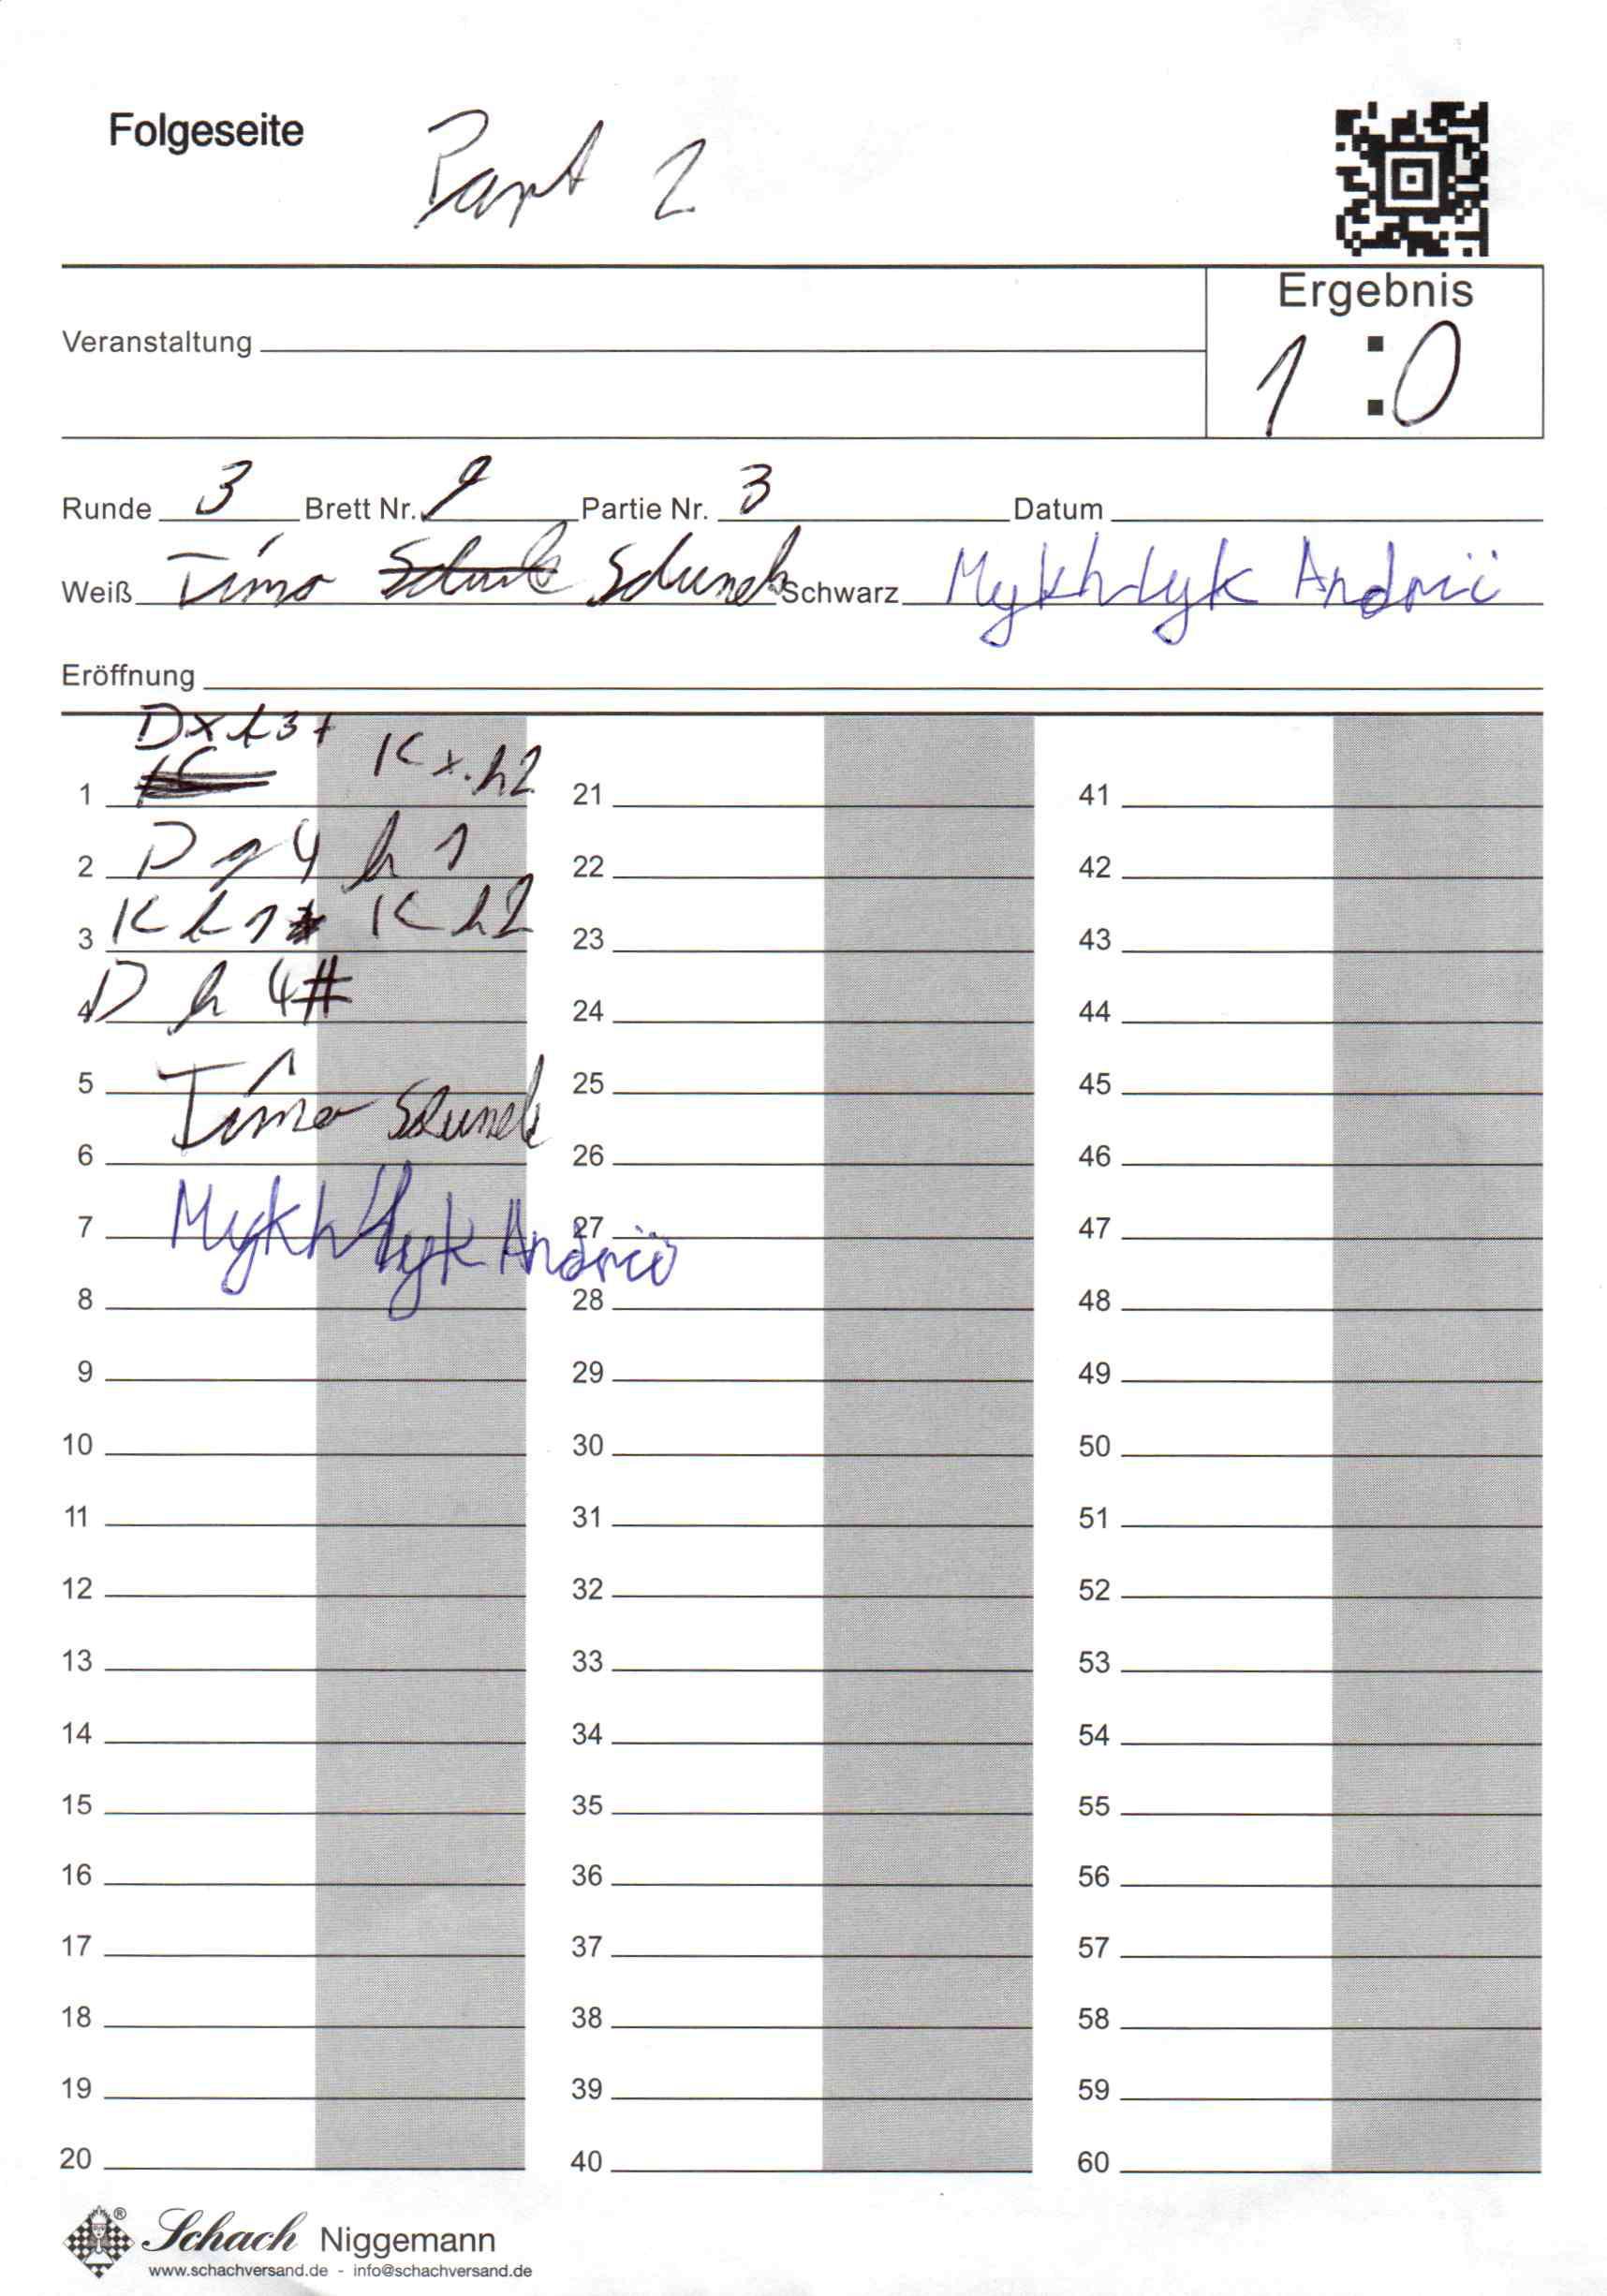 Folgeseite Part 2
Ergebnis
Veranstaltung 1 : 0
Runde 3 Brett Nr. 9 Partie Nr. 3 Datum
Weiß Timo Schunck Schwarz Mykhlyk Andrii
Eröffnung
Dxf3+
1 Kxh2 21 41
2 Dg4 h1 22 42
3 Kf1 Kh2 23 43
4 Dh4# 24 44
5 25 45
Timo Schunck
6 26 46
7 27 47
Mykhlyk Andrii
8 28 48
9 29 49
10 30 50
11 31 51
12 32 52
13 33 53
14 34 54
15 35 55
16 36 56
17 37 57
18 38 58
19 39 59
20 40 60
Schach Niggemann
www.schachversand.de - info@schachversand.de